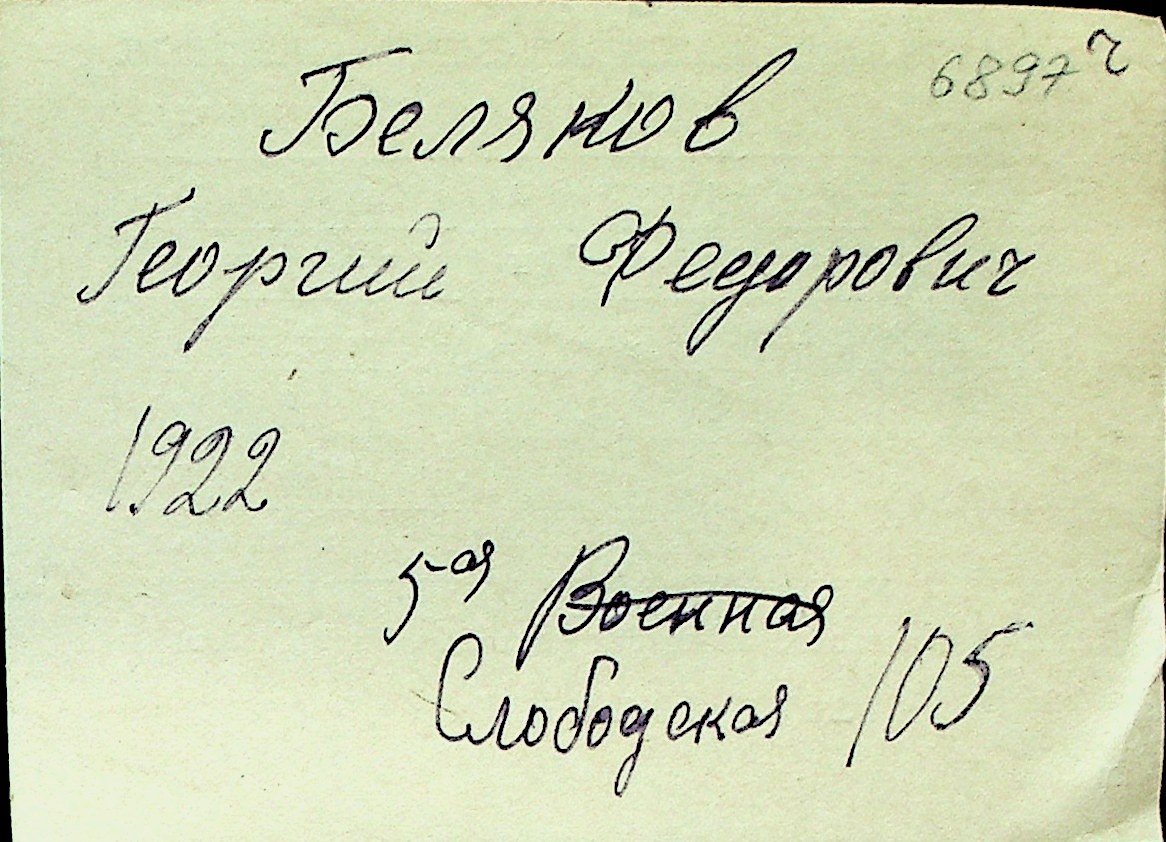 6897 ч
Беляков
Георгий Федорович
1922
5ая Военная
Слободская 105